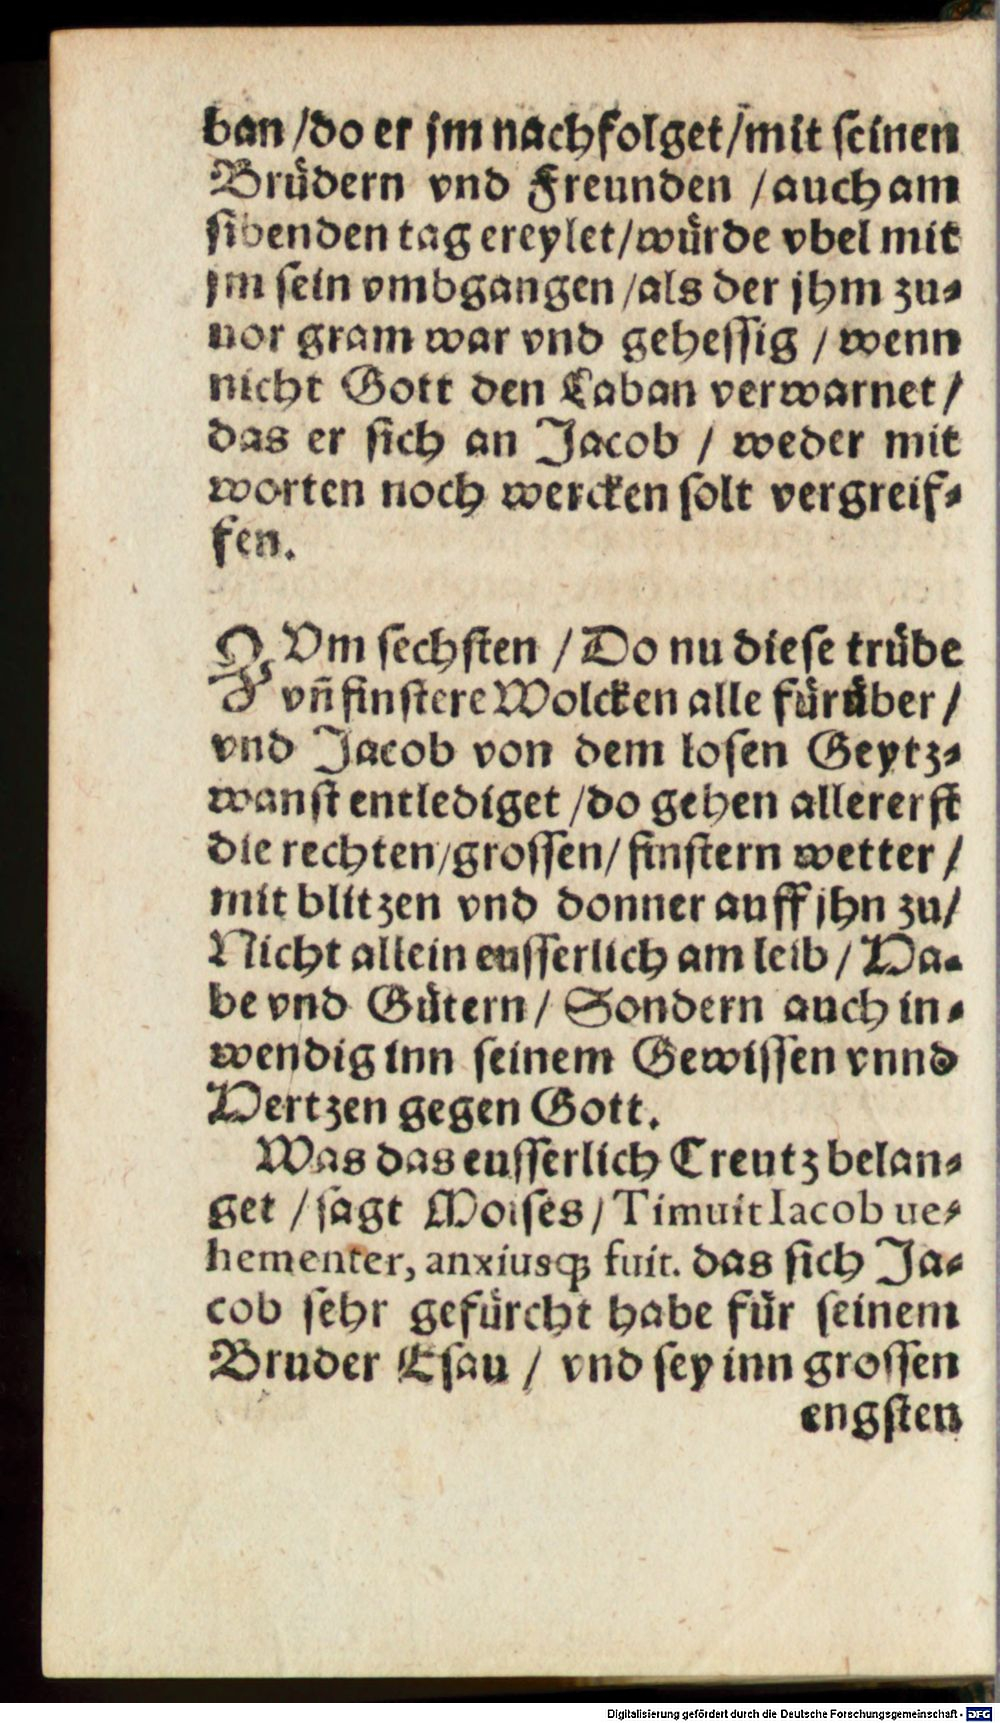 ban /do er jm nachfolget/mit seinen
Brüdern vnd Freunden /auch am
sibenden tag ereylet/würde vbel mit
jm sein vmbgangen /als der jhm zu⸗
uor gram war vnd gehessig / wenn
nicht Gott den Laban verwarnet /
das er sich an Jacob / weder mit
worten noch wercken solt vergreif⸗
fen.
ZVm sechsten / Do nu diese trübe
vñ finstere Wolcken alle fürüber /
vnd Jacob von dem losen Geytz⸗
wanst entlediget /do gehen allererst
die rechten/grossen/ finstern wetter /
mit blitzen vnd donner auff jhn zu/
Nicht allein eusserlich am leib / Ha⸗
be vnd Gütern/ Sondern auch in⸗
wendig inn seinem Gewissen vnnd
Hertzen gegen Gott.
Was das eusserlich Creutz belan⸗
get / sagt Moises / Timuit Iacob ue⸗
hementer, anxiusqꝫ fuit. das sich Ja⸗
cob sehr gefürcht habe für seinem
Bruder Esau / vnd sey inn grossen
engsten
Digitalisierung gefördert durch die Deutsche Forschungsgemeinschaft - DFG